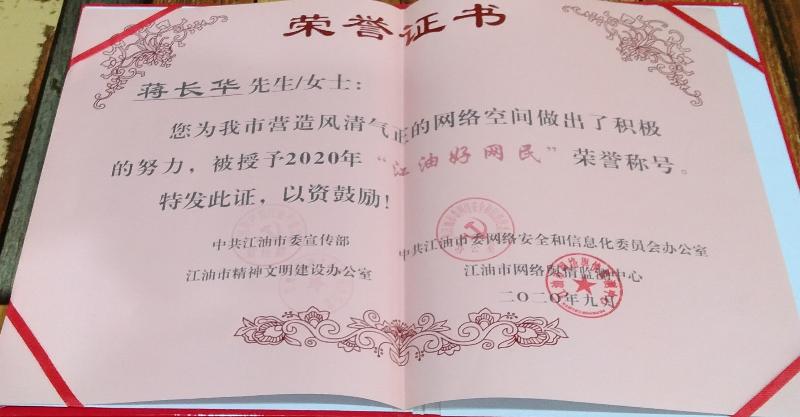 荣誉证书
蒋长华先生/女士：
您为我市营造风清气正的网络空间做出了积极
的努力，被授予2020年“江油好网民”荣誉称号。
特发此证，以资鼓励！
中共江油市委宣传部
中共江油市委网络安全和信息化委员会办公室
江油市精神文明建设办公室
江油市网络舆情监测中心
二〇二〇年九月